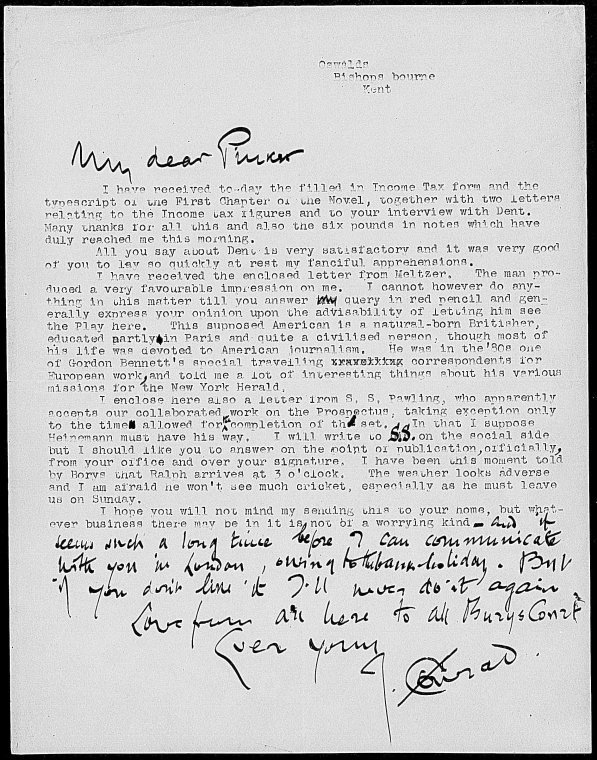 Oswalds
Bishopsbourne
Kent
My dear Pinker
I have received to-day the filled in Income Tax form and the
typescript of the First Chapter of the Novel, together with two letters
relating to the Income tax figures and to your interview with Dent.
Many thanks for all this and also the six pounds in notes which have
duly reached me this morning.
All you say about Dent is very satisfactory and it was very good
of you to lay so quickly at rest my fanciful apprehensions.
I have received the enclosed letter from Meltzer. The man pro-
duced a very favourable impression on me. I cannot however do any-
thing in this matter till you answer my query in red pencil and gen-
erally express your opinion upon the advisability of letting him see
the Play here. This supposed American is a natural-born Britisher,
educated partly in Paris and quite a civilised person, though most of
his life was devoted to American journalism. He was in the '80s one
of Gordon Bennett's special travelling correspondents for
European work, and told me a lot of interesting things about his various
missions for the New York Herald.
I enclose here also a letter from S. S. Pawling, who apparently
accepts our collaborated work on the Prospectus, taking exception only
to the time allowed for completion of the set. In that I suppose
Heinemann must have his way. I will write to S.S. on the social side
but I should like you to answer on the point of publication, officially,
from your office and over your signature. I have been this moment told
by Borys that Ralph arrives at 3 o'clock. The weather looks adverse
and I am afraid he won't see much cricket, especially as he must leave
us on Sunday.
I hope you will not mind my sending this to your home, but what-
ever business there may be in it is not of a worrying kind — and it
seems such a long time before I can communicate
with you in London, owing to the bank-holiday. But
if you don't like it I'll never do it again
Love from all here to all Burys Court
Ever yours
J. Conrad.